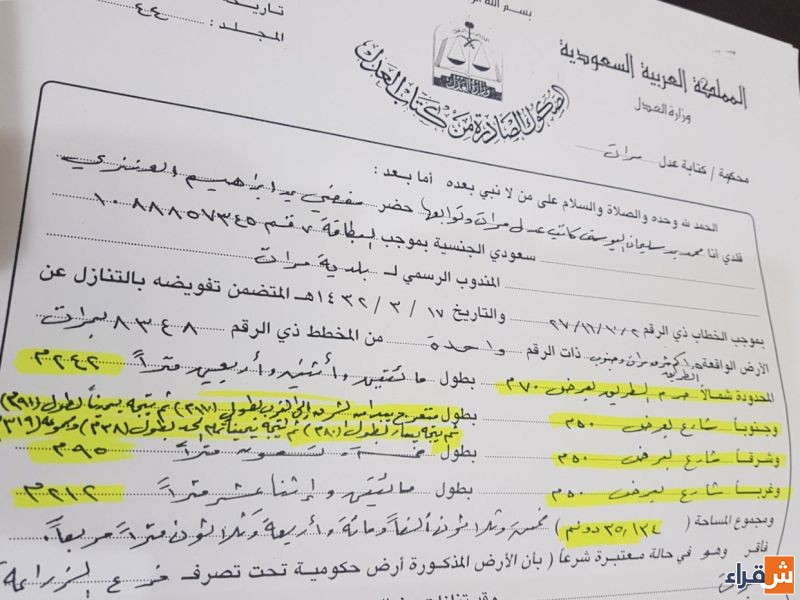 بسم الله الر
المملكة العربية السعودية
وزارة العدل
الصكوك الصادرة من كتاب العدل
وزارة العدل
تاريخه
المجلد : ٤٤٠
محكمة / كتابة عدل مرات
الحمد لله وحده والصلاة والسلام على من لا نبي بعده أما بعد :
فلدي أنا محمد بن سليمان اليوسف كاتب عدل مرات وتوابعها حضر مفضي بن ابراهيم العنزي
سعودي الجنسية بموجب البطاقة رقم ١٠٨٨٨٥٧٣٤٥
المندوب الرسمي لـ بلدية مرات
بموجب الخطاب ذي الرقم والتاريخ ١٧ / ٣ / ١٤٣٢هـ المتضمن تفويضه بالتنازل عن
الأرض الواقعة ذات الرقم واحدة من المخطط ذي الرقم ٨٣٤٨ بمرات
المحدودة شمالاً حرم الطريق بعرض ٧٠م بطول مائتين وأثنين وأربعين متراً ٢٤٢م
وجنوباً شارع بعرض ٥٠م بطول متعرج يبدأ من الشرق إلى الغرب بطول ثم يتجه يميناً بطول
ثم يتجه يسار بطول (٣٨٠) ثم يتجه يميناً بطول (٣٨م) ومجموعه (٣١٩م)
وشرقاً شارع بعرض ٥٠م بطول خمسة وتسعون متراً ٩٥م
وغرباً شارع بعرض ٥٠م بطول مائتين وإثنا عشر متراً ٢١٢م
ومجموع المساحة ( ٣٥,١٣٤ دونم ) خمسة وثلاثون ألفاً ومائة وأربعة وثلاثون متراً مربعاً.
فأقر وهو في حالة معتبرة شرعاً ( بأن الأرض المذكورة أرض حكومية تحت تصرف فرع الزراعة
شقراء